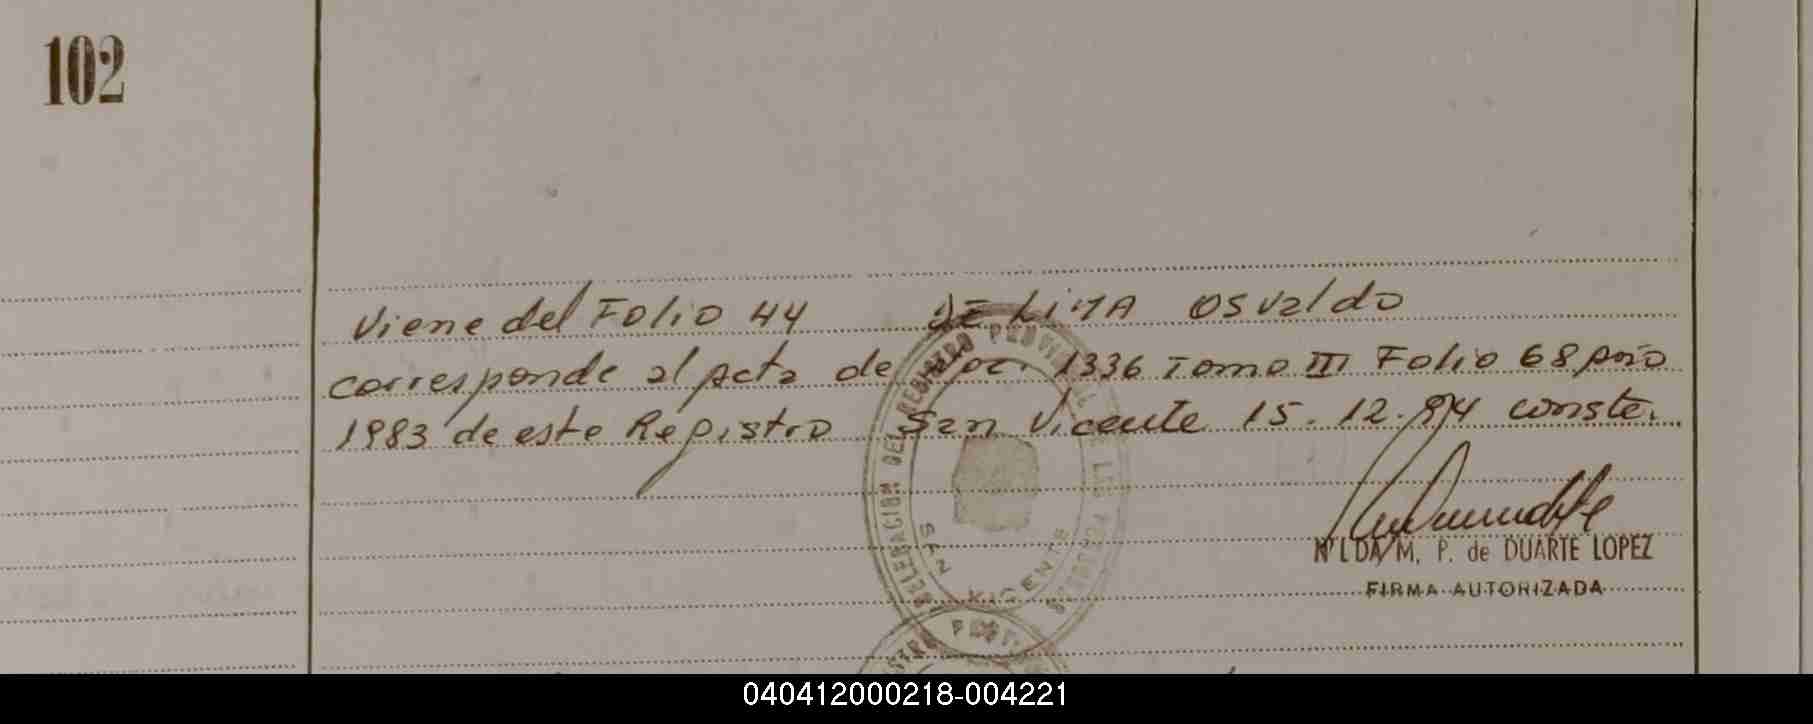 102
Viene del Folio 44 DE LIMA OSValdo
corresponde al acta de loc. 1336 Tomo III Folio 68 año
1983 de este Registro San Vicente 15.12.94 conste.
DELEGACION DEL REGISTRO PROVINCIAL DE LAS PERSONAS
SAN VICENTE
NILDA M. P. de DUARTE LOPEZ
FIRMA AUTORIZADA
040412000218-004221